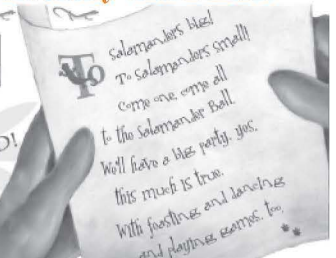 To salamanders big!
To salamanders small!
Come one, come all
to the Salamander Ball.
We'll have a big party, yes,
this much is true.
With feasting and dancing
and playing games, too.